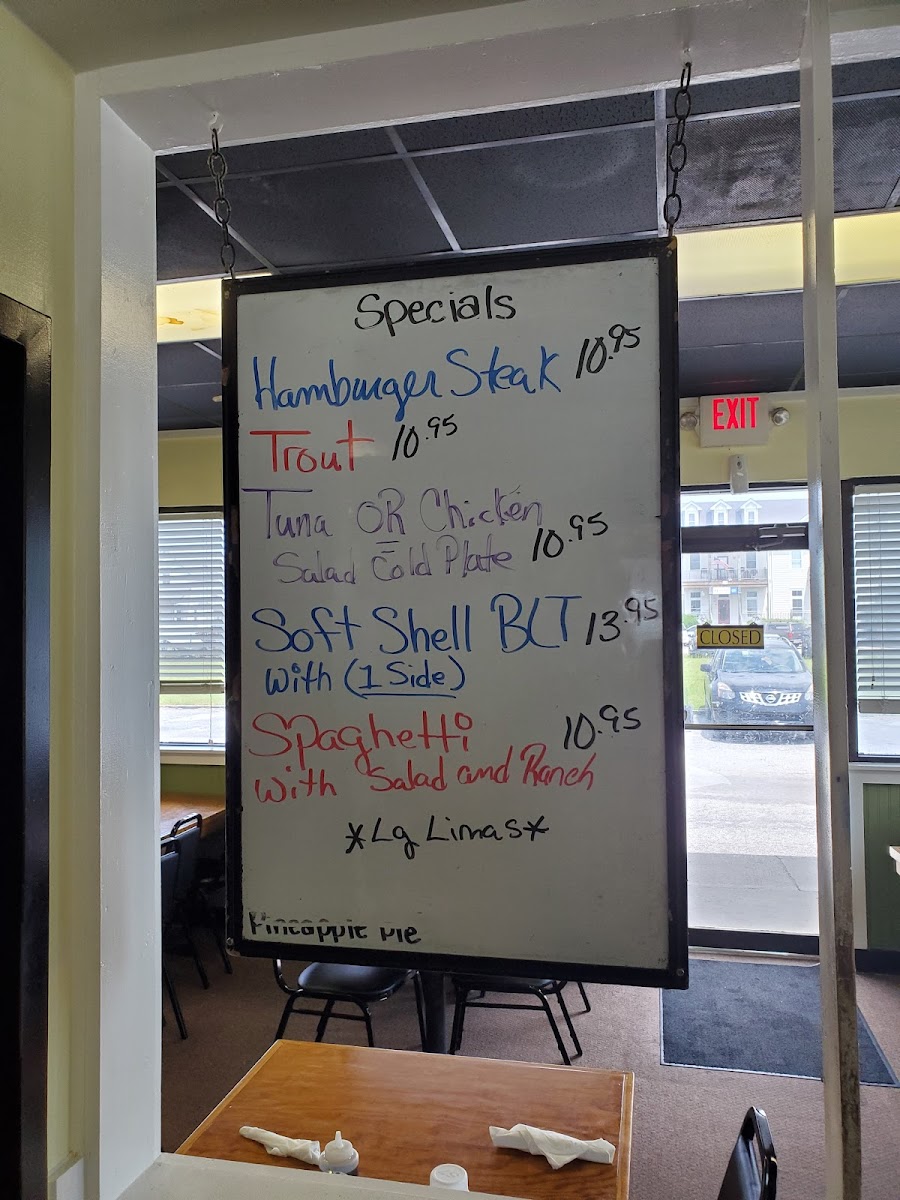 Specials
Hamburger Steak 10.95
Trout 10.95
Tuna OR Chicken
Salad Cold Plate 10.95
Soft Shell BLT 13.95
With (1 Side)
Spaghetti 10.95
With Salad and Ranch
*Lg Limas*
Pineapple Pie
EXIT
CLOSED